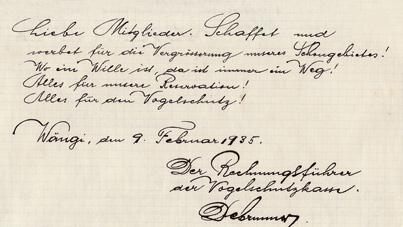 Liebe Mitglieder. Schaffet und
werbet für die Vergrösserung unseres Schongebietes!
Wo ein Wille ist, da ist immer ein Weg!
Alles für unsere Reservation!
Alles für den Vogelschutz!
Wängi, den 9. Februar 1935.
Der Rechnungsführer
der Vogelschutzkasse.
Debrunner.